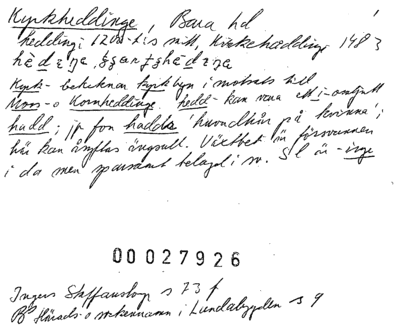 Kyrkheddinge, Bara hd
heddingi 1200-t:s mitt, Kirkehæddinge 148
Kyrk- betecknar kyrkbyn i motsats till
Mos- o Kornheddinge. hedd- kan vara ett i-omljutt
hadd; jfr fvn haddr 'huvudhår på kvinna';
här kan åsyftas ängsull. Växtbet är försvunnen
i da men sparsamt belagd i sv. Sl är -inge
00027926
Ingers Staffanstorp s 73 f
Härads- o socknenamn i Lundabygden s 9